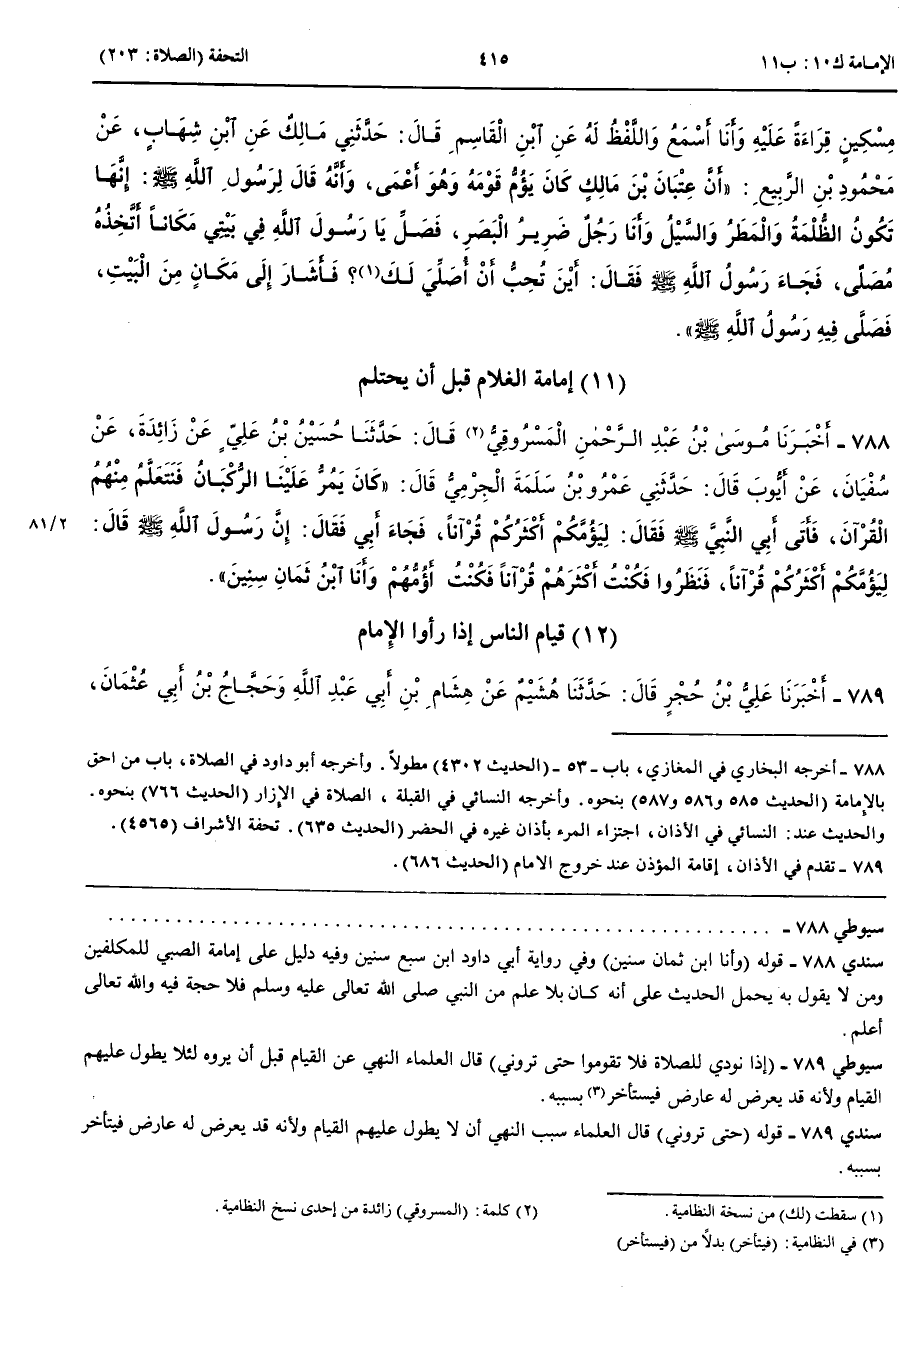 الإمامة ك١٠: ب١١ ٤١٥ التحفة (الصلاة: ٢٠٣)
مِسْكِينٍ قِرَاءَةً عَلَيْهِ وَأَنَا أَسْمَعُ وَاللَّفْظُ لَهُ عَنِ ٱبْنِ الْقَاسِمِ قَالَ: حَدَّثَنِي مَالِكٌ عَنِ ٱبْنِ شِهَابٍ، عَنْ
مَحْمُودِ بْنِ الرَّبِيعِ: «أَنَّ عِتْبَانَ بْنَ مَالِكٍ كَانَ يَؤُمُّ قَوْمَهُ وَهُوَ أَعْمَى، وَأَنَّهُ قَالَ لِرَسُولِ ٱللَّهِ ﷺ: إِنَّهَا
تَكُونُ الظُّلْمَةُ وَالْمَطَرُ وَالسَّيْلُ وَأَنَا رَجُلٌ ضَرِيرُ الْبَصَرِ، فَصَلِّ يَا رَسُولَ ٱللَّهِ فِي بَيْتِي مَكَاناً أَتَّخِذُهُ
مُصَلًّى، فَجَاءَ رَسُولُ ٱللَّهِ ﷺ فَقَالَ: أَيْنَ تُحِبُّ أَنْ أُصَلِّيَ لَكَ(١)؟ فَأَشَارَ إِلَى مَكَانٍ مِنَ الْبَيْتِ،
فَصَلَّى فِيهِ رَسُولُ ٱللَّهِ ﷺ».
(١١) إمامة الغلام قبل أن يحتلم
٧٨٨ ـ أَخْبَرَنَا مُوسَىٰ بْنُ عَبْدِ الرَّحْمٰنِ الْمَسْرُوقِيُّ(٢) قَالَ: حَدَّثَنَا حُسَيْنُ بْنُ عَلِيٍّ عَنْ زَائِدَةَ، عَنْ
سُفْيَانَ، عَنْ أَيُّوبَ قَالَ: حَدَّثَنِي عَمْرُو بْنُ سَلَمَةَ الْجِرْمِيُّ قَالَ: «كَانَ يَمُرُّ عَلَيْنَا الرُّكْبَانُ فَنَتَعَلَّمُ مِنْهُمُ
الْقُرْآنَ، فَأَتَى أَبِي النَّبِيَّ ﷺ فَقَالَ: لِيَؤُمَّكُمْ أَكْثَرُكُمْ قُرْآناً، فَجَاءَ أَبِي فَقَالَ: إِنَّ رَسُولَ ٱللَّهِ ﷺ قَالَ: ٨١/٢
لِيَؤُمَّكُمْ أَكْثَرُكُمْ قُرْآناً، فَنَظَرُوا فَكُنْتُ أَكْثَرَهُمْ قُرْآناً فَكُنْتُ أَؤُمُّهُمْ وَأَنَا ٱبْنُ ثَمَانِ سِنِينَ».
(١٢) قيام الناس إذا رأوا الإمام
٧٨٩ ـ أَخْبَرَنَا عَلِيُّ بْنُ حُجْرٍ قَالَ: حَدَّثَنَا هُشَيْمٌ عَنْ هِشَامِ بْنِ أَبِي عَبْدِ ٱللَّهِ وَحَجَّاجُ بْنُ أَبِي عُثْمَانَ،
٧٨٨ ـ أخرجه البخاري في المغازي، باب ـ ٥٣ ـ (الحديث ٤٣٠٢) مطولاً. وأخرجه أبو داود في الصلاة، باب من احق
بالإمامة (الحديث ٥٨٥ و٥٨٦ و٥٨٧) بنحوه. وأخرجه النسائي في القبلة، الصلاة في الإزار (الحديث ٧٦٦) بنحوه.
والحديث عند: النسائي في الأذان، اجتزاء المرء بأذان غيره في الحضر (الحديث ٦٣٥). تحفة الأشراف (٤٥٦٥).
٧٨٩ ـ تقدم في الأذان، إقامة المؤذن عند خروج الامام (الحديث ٦٨٦).
سيوطي ٧٨٨ ـ ..........................................................
سندي ٧٨٨ ـ قوله (وأنا ابن ثمان سنين) وفي رواية أبي داود ابن سبع سنين وفيه دليل على إمامة الصبي للمكلفين
ومن لا يقول به يحمل الحديث على أنه كان بلا علم من النبي صلى الله تعالى عليه وسلم فلا حجة فيه والله تعالى
أعلم.
سيوطي ٧٨٩ ـ (إذا نودي للصلاة فلا تقوموا حتى تروني) قال العلماء النهي عن القيام قبل أن يروه لئلا يطول عليهم
القيام ولأنه قد يعرض له عارض فيستأخر(٣) بسببه.
سندي ٧٨٩ ـ قوله (حتى تروني) قال العلماء سبب النهي أن لا يطول عليهم القيام ولأنه قد يعرض له عارض فيتأخر
بسببه.
(١) سقطت (لك) من نسخة النظامية. (٢) كلمة: (المسروقي) زائدة من إحدى نسخ النظامية.
(٣) في النظامية: (فيتأخر) بدلاً من (فيستأخر)